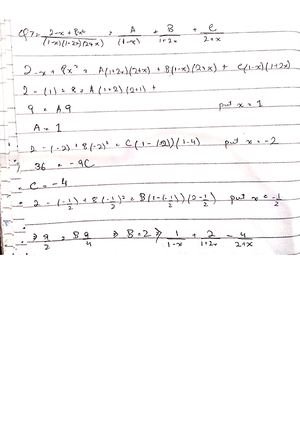 Q7 = 2-x+8x² / (1-x)(1+2x)(2+x) = A/(1-x) + B/1+2x + C/2+x
2-x+8x² = A(1+2x)(2+x) + B(1-x)(2+x) + C(1-x)(1+2x)
2-(1)+8 = A(1+2)(2+1) +
9 = A9 put x = 1
A = 1
2-(-2)+8(-2)² = C(1-(-2))(1-4) put x = -2
36 = -9C
C = -4
2-(-1/2)+8(-1/2)² = B(1-(-1/2))(2-1/2) put x = -1/2
⇒ 9/2 = B9/4 ⇒ B=2 ⇒ 1/1-x + 2/1+2x - 4/2+x